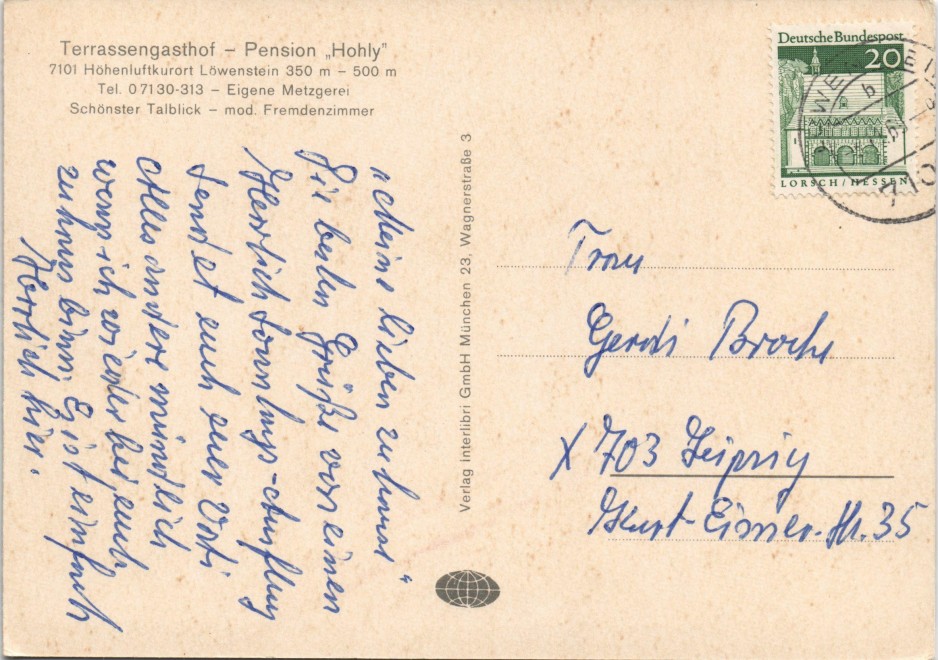 Terrassengasthof – Pension „Hohly"
7101 Höhenluftkurort Löwenstein 350 m – 500 m
Tel. 0 71 30-313 – Eigene Metzgerei
Schönster Talblick – mod. Fremdenzimmer
Meine lieben zu haus"
Die besten Grüße von einem
Herrlich Sonntags-Ausflug
sendet euch euer
Alles andere mündlich
wenn ich wieder bei euch
zu haus bin. Es ist einfach
Herrlich hier.
Verlag Interlibri GmbH München 23, Wagnerstraße 3
Deutsche Bundespost
20
LORSCH/HESSEN
Frau
Gerdi
X 703 Leipzig
Kurt-Eisner-Str. 35